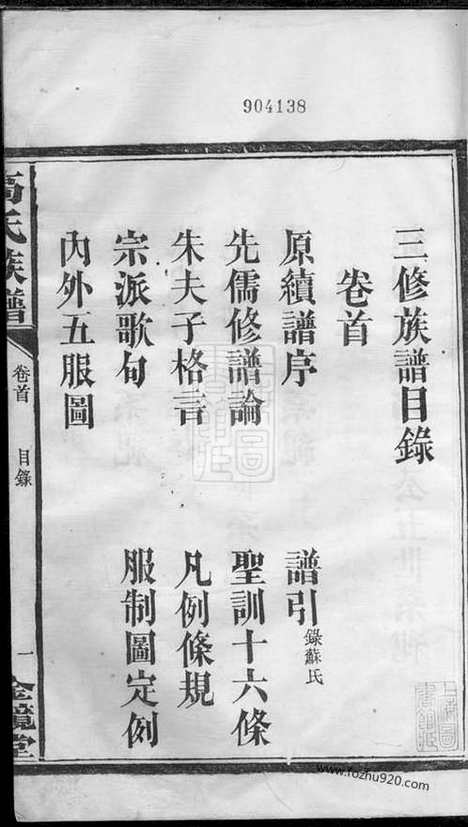 904138
三修族譜目錄
卷首
原續譜序
譜引 錄蘇氏
先儒修譜論
聖訓十六條
朱夫子格言
凡例條規
宗派歌句
服制圖定例
內外五服圖
氏族譜
卷首
目錄
一
金鏡堂
www.fozhu920.com